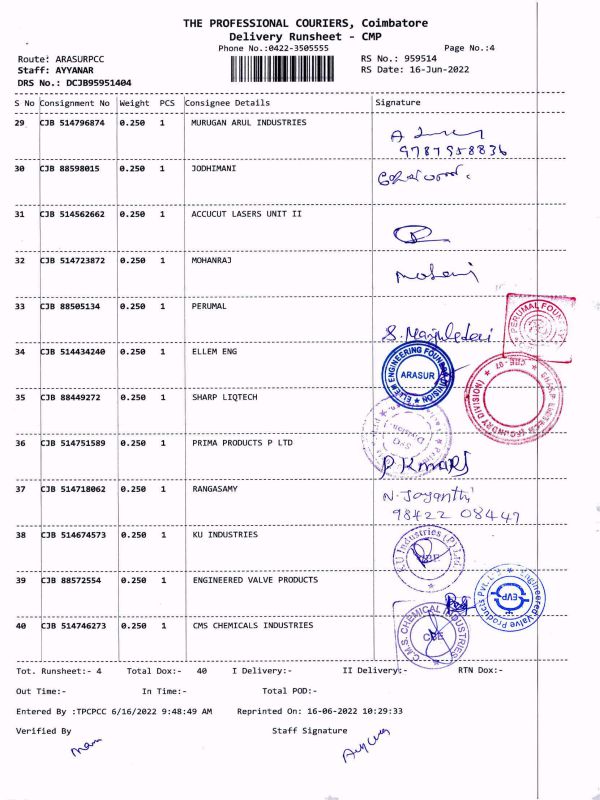 THE PROFESSIONAL COURIERS, Coimbatore
Delivery Runsheet - CMP
Phone No.:0422-3505555 Page No.:4
Route: ARASURPCC RS No.: 959514
Staff: AYYANAR RS Date: 16-Jun-2022
DRS No.: DCJB95951404
S No Consignment No Weight PCS Consignee Details Signature
29 CJB 514796874 0.250 1 MURUGAN ARUL INDUSTRIES
9787958836
30 CJB 88598015 0.250 1 JODHIMANI
31 CJB 514562662 0.250 1 ACCUCUT LASERS UNIT II
32 CJB 514723872 0.250 1 MOHANRAJ
33 CJB 88505134 0.250 1 PERUMAL
PERUMAL
34 CJB 514434240 0.250 1 ELLEM ENG
ELLEM ENGINEERING
ARASUR
35 CJB 88449272 0.250 1 SHARP LIQTECH
SHARP LIQTECH (FOUNDRY DIVISION)
36 CJB 514751589 0.250 1 PRIMA PRODUCTS P LTD
37 CJB 514718062 0.250 1 RANGASAMY
N. Jayanthi
98422 08447
38 CJB 514674573 0.250 1 KU INDUSTRIES
KU Industries (P) Ltd
39 CJB 88572554 0.250 1 ENGINEERED VALVE PRODUCTS
Engineered Valve Products Pvt. Ltd
EVP
40 CJB 514746273 0.250 1 CMS CHEMICALS INDUSTRIES
C.M.S. CHEMICAL INDUSTRIES
CBE
Tot. Runsheet:- 4 Total Dox:- 40 I Delivery:- II Delivery:- RTN Dox:-
Out Time:- In Time:- Total POD:-
Entered By :TPCPCC 6/16/2022 9:48:49 AM Reprinted On: 16-06-2022 10:29:33
Verified By Staff Signature